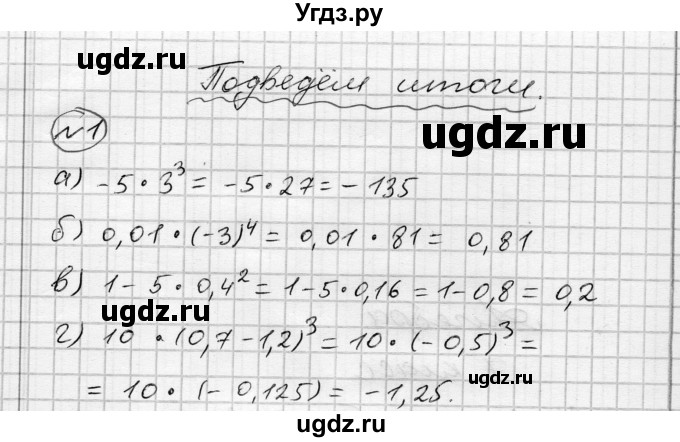 Угдз.ру
ugdz.ru
ugdz.ru
Подведём итоги.
№1
ugdz.ru
а) -5 · 3³ = -5 · 27 = -135
б) 0,01 · (-3)⁴ = 0,01 · 81 = 0,81
в) 1 - 5 · 0,4² = 1 - 5 · 0,16 = 1 - 0,8 = 0,2
ugdz.ru
г) 10 · (0,7 - 1,2)³ = 10 · (-0,5)³ =
= 10 · (-0,125) = -1,25.
ugdz.ru
ugdz.ru
Угдз.ру